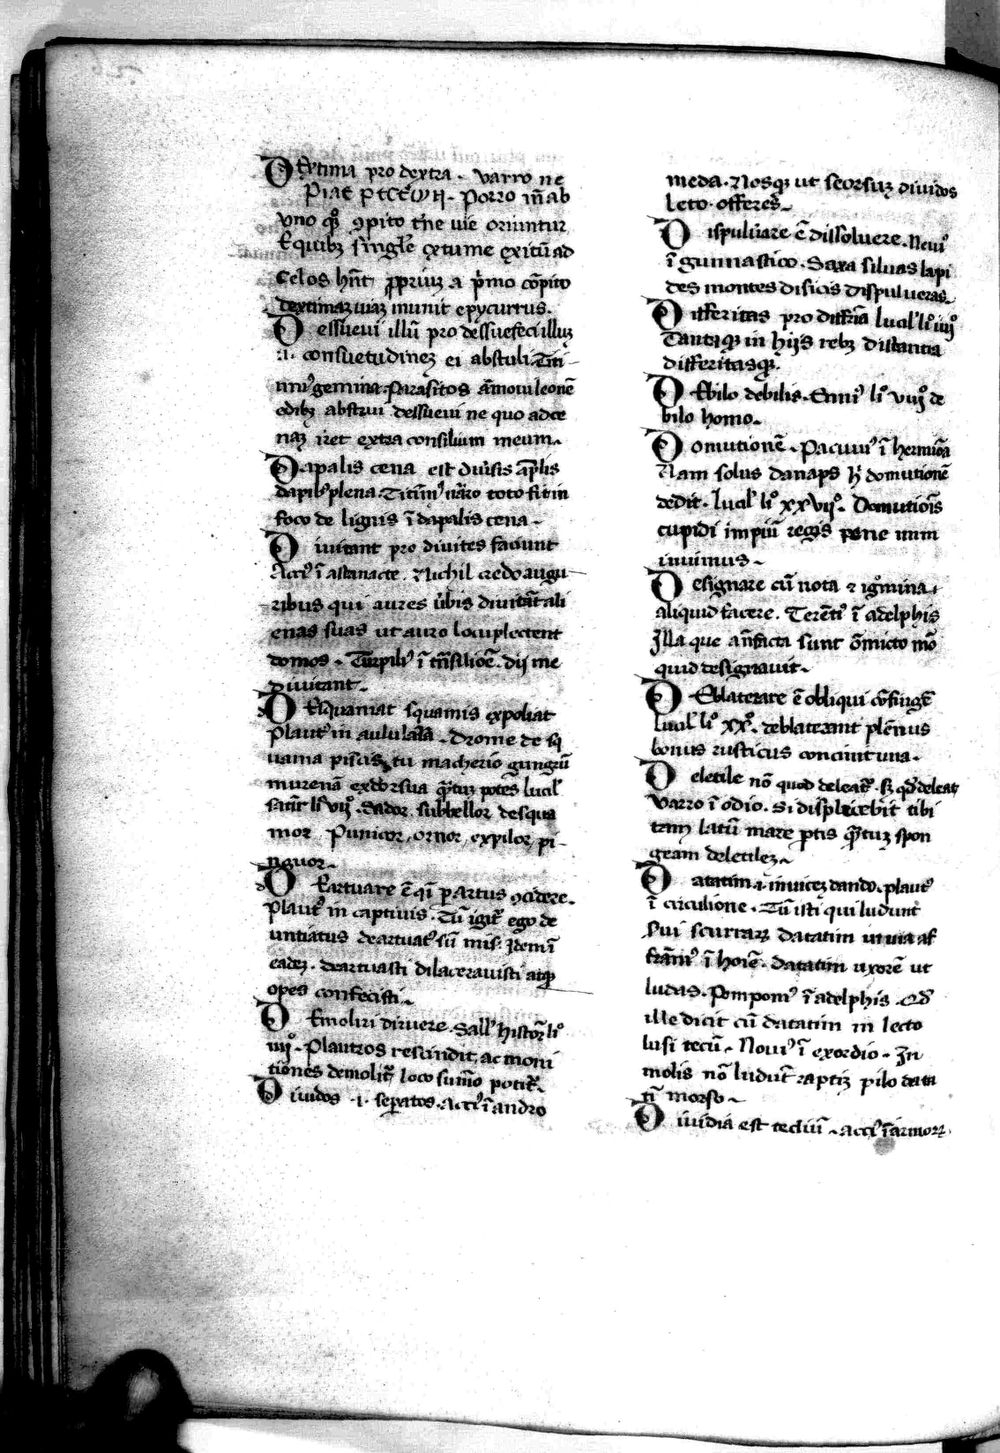 Dextima pro dextra. Varro ne
piae ptcewn. Porro in ab
uno qo compito the uie oriuntur
Equibz singule extume exitu ad
celos hnt pprium a pmo copito
dextimaz uiaz munit epycurrus.
Dessueui illu pro dessuefeci illuz
.i. consuetudinez ei abstuli. Titi
nius gemina. Parasitos amoui leone
edibz abstrui dessueui ne quo adce
naz iret extra consilium meum.
Dapalis cena est diuisis aplis
dapibus plena. Titinius toto fit in
foco de lignis i dapalis cena.
Diuitant pro diuites faciunt
Accius i astanacte. Nichil credo augu
ribus qui aures ubis diuitat ali
enas suas ut auro locuplectent
domos. Turpilius i. dij me
diuitant.
Desquamat squamis expoliat
Plautus in aulularia. Drome de sq
uama piscis tu macherio gungru
murena exdorsua qtuz potes lucil
satir li VIIo. Sador. subbellor desqua
mor. Punicor, ornor, expilor, pi
nguor.
Deartuare e qi p artus concidere.
Plautus in captiuis. Tu igit ego de
untiatus deartuatus su mis. Idem i
eadez. deartuasti dilacerauisti atq
opes confecisti.
Demoliri diruere. Sall histor lio
iiijo. Plautros rescindit ac moni
tiones demolit loco sumo potit.
Diuidos .i. sepatos. Accius i andro
meda. Nosq ut seorsuz diuidos
leto offeres.
Dispuluare e dissoluere. Neuius
i gumnastico. Saxa siluas lapi
des montes disicis dispulueras.
Differitas pro diffria lucil lio iiijo
Tantiq in hijs rebz distantia
differitasq.
Debilo debilis. Ennius lio VIIIo de
bilo homo.
Domutione. Pacuuius i hermiona
Nam solus danaps h domutione
dedit. lucil lio XXVIIo. Domutiois
cupidi impiu regis pene imm
inuimus.
Designare cu nota et igomina
aliquid facere. Terentius i adelphis
Illa que antefacta sunt omicto mo
quid designauit.
Deblaterare e obliqui confinge
lucil lio XXo. deblaterant plenus
bonus rusticus concinit una.
Deletile no quod deleat. s qd deleat
Varro i odio. Si displicebit tibi
tam latu mare potis qtuz spon
geam deletilez.
Datatim .i. inuicez dando. plautus
i curculione. Tu isti qui ludunt
sui scurrarz datatim in uia af
franius i hoie. datatim uxore ut
ludas. Pomponius i adelphis. Qd
ille dicit cu datatim in lecto
lusi tecu. Nouius i exordio. In
molis no ludut raptiz pilo data
ti morso.
Diuidia est tediu. Accius i armorz